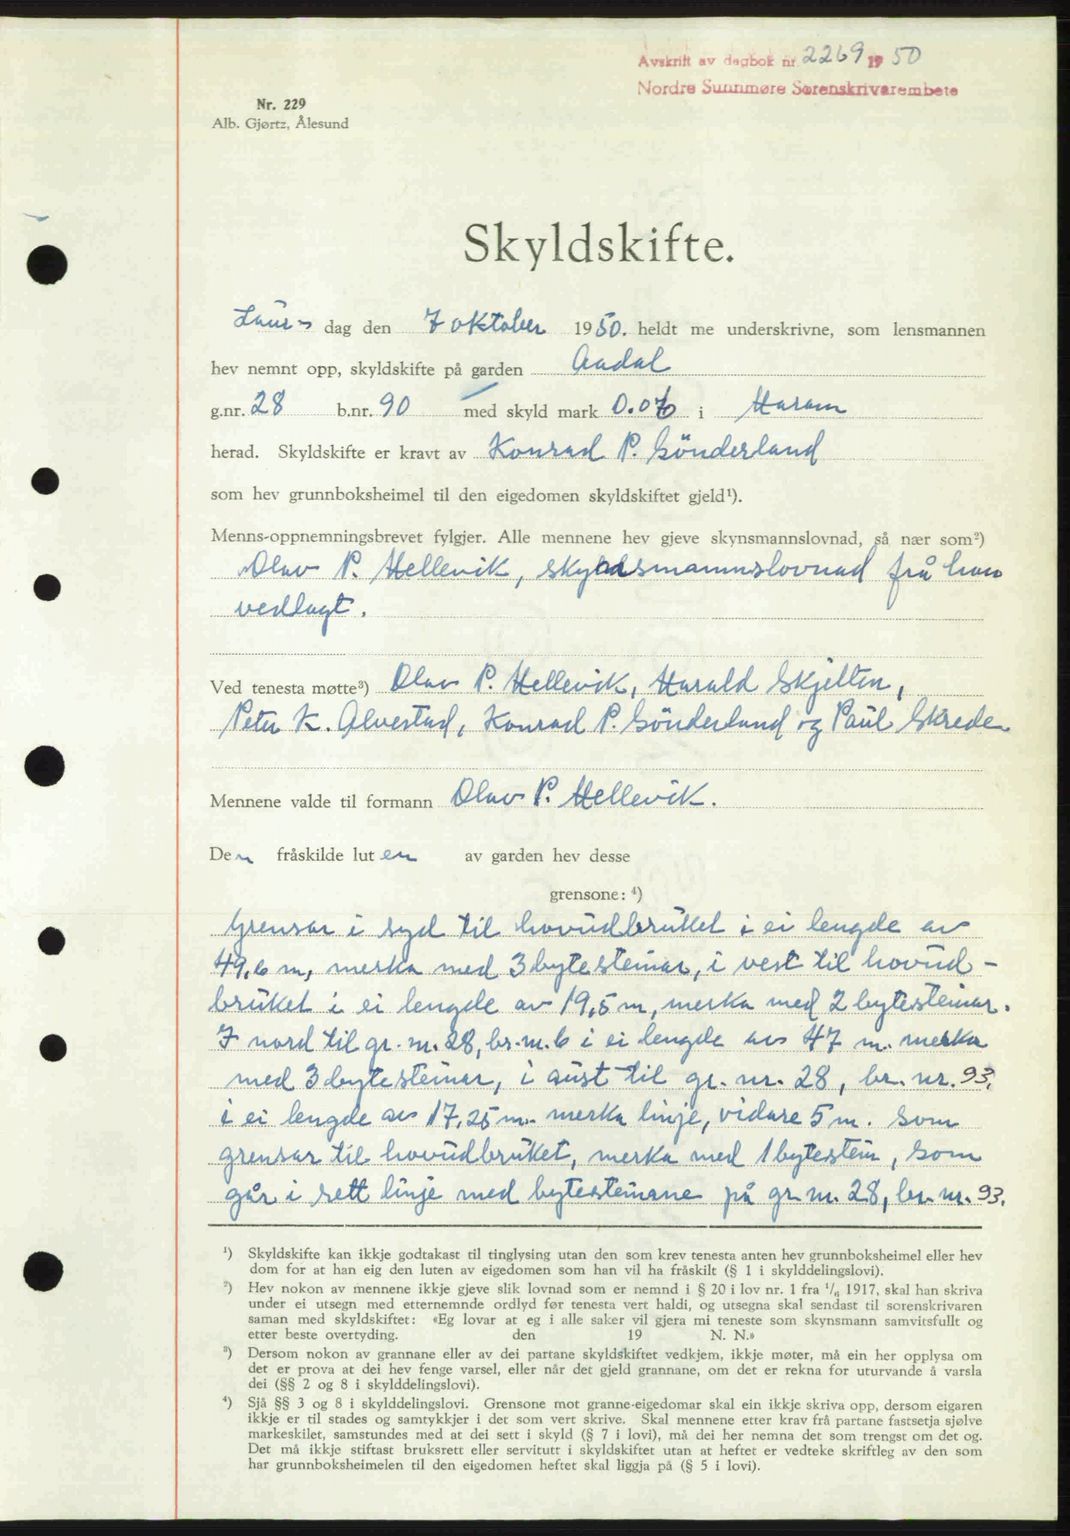 Avskrift av dagbok nr 2269 1950
Nordre Sunnmøre Sorenskrivarembete
Nr. 229
Alb. Gjørtz, Ålesund
Skyldskifte.
Laur- dag den 7 oktober 1950. heldt me underskrivne, som lensmannen
hev nemnt opp, skyldskifte på garden Aadal
g.nr. 28 b.nr. 90 med skyld mark 0.06 i Haram
herad. Skyldskifte er kravt av Konrad P. Sönderland
som hev grunnboksheimel til den eigedomen skyldskiftet gjeld¹).
Menns-oppnemningsbrevet fylgjer. Alle mennene hev gjeve skynsmannslovnad, så nær som²)
Olav P. Hellevik, skyndsmannslovnad frå han
vedlagt.
Ved tenesta møtte³) Olav P. Hellevik, Harald Skjelten,
Peter K. Alvestad, Konrad P. Sönderland og Paul Skrede
Mennene valde til formann Olav P. Hellevik.
Den fråskilde luten av garden hev desse
grensone: ⁴)
Grensar i syd til hovudbruket i ei lengde av
49,6 m, merka med 3 bytesteinar, i vest til hovud-
bruket i ei lengde av 19,5 m, merka med 2 bytesteinar.
I nord til gr. nr. 28, br. nr. 6 i ei lengde av 47 m. merka
med 3 bytesteinar, i aust til gr. nr. 28, br. nr. 93,
i ei lengde av 17,25 m. merka linje, vidare 5 m. som
grensar til hovudbruket, merka med 1 bytestein, som
går i rett linje med bytesteinane på gr. nr. 28, br. nr. 93.
¹) Skyldskifte kan ikkje godtakast til tinglysing utan den som krev tenesta anten hev grunnboksheimel eller hev
dom for at han eig den luten av eigedomen som han vil ha fråskilt (§ 1 i skylddelingslovi).
²) Hev nokon av mennene ikkje gjeve slik lovnad som er nemnd i § 20 i lov nr. 1 fra 1/6 1917, skal han skriva
under ei utsegn med etternemnde ordlyd før tenesta vert haldi, og utsegna skal sendast til sorenskrivaren
saman med skyldskiftet: «Eg lovar at eg i alle saker vil gjera mi teneste som skynsmann samvitsfullt og
etter beste overtyding. den 19 N. N.»
³) Dersom nokon av grannane eller av dei partane skyldskiftet vedkjem, ikkje møter, må ein her opplysa om
det er prova at dei hev fenge varsel, eller når det gjeld grannane, om det er rekna for uturvande å varsla
dei (§§ 2 og 8 i skylddelingslovi).
⁴) Sjå §§ 3 og 8 i skylddelingslovi. Grensone mot granne-eigedomar skal ein ikkje skriva opp, dersom eigaren
ikkje er til stades og samtykkjer i det som vert skrive. Skal mennene etter krav frå partane fastsetja sjølve
markeskilet, samstundes med at dei sett i skyld (§ 7 i lovi), må dei her nemna det som trengst om det og.
Det må ikkje stiftast bruksrett eller servitutt i skyldskiftet utan at heftet er vedteke skriftleg av den som
har grunnboksheimelen til den eigedomen heftet skal liggja på (§ 5 i lovi).